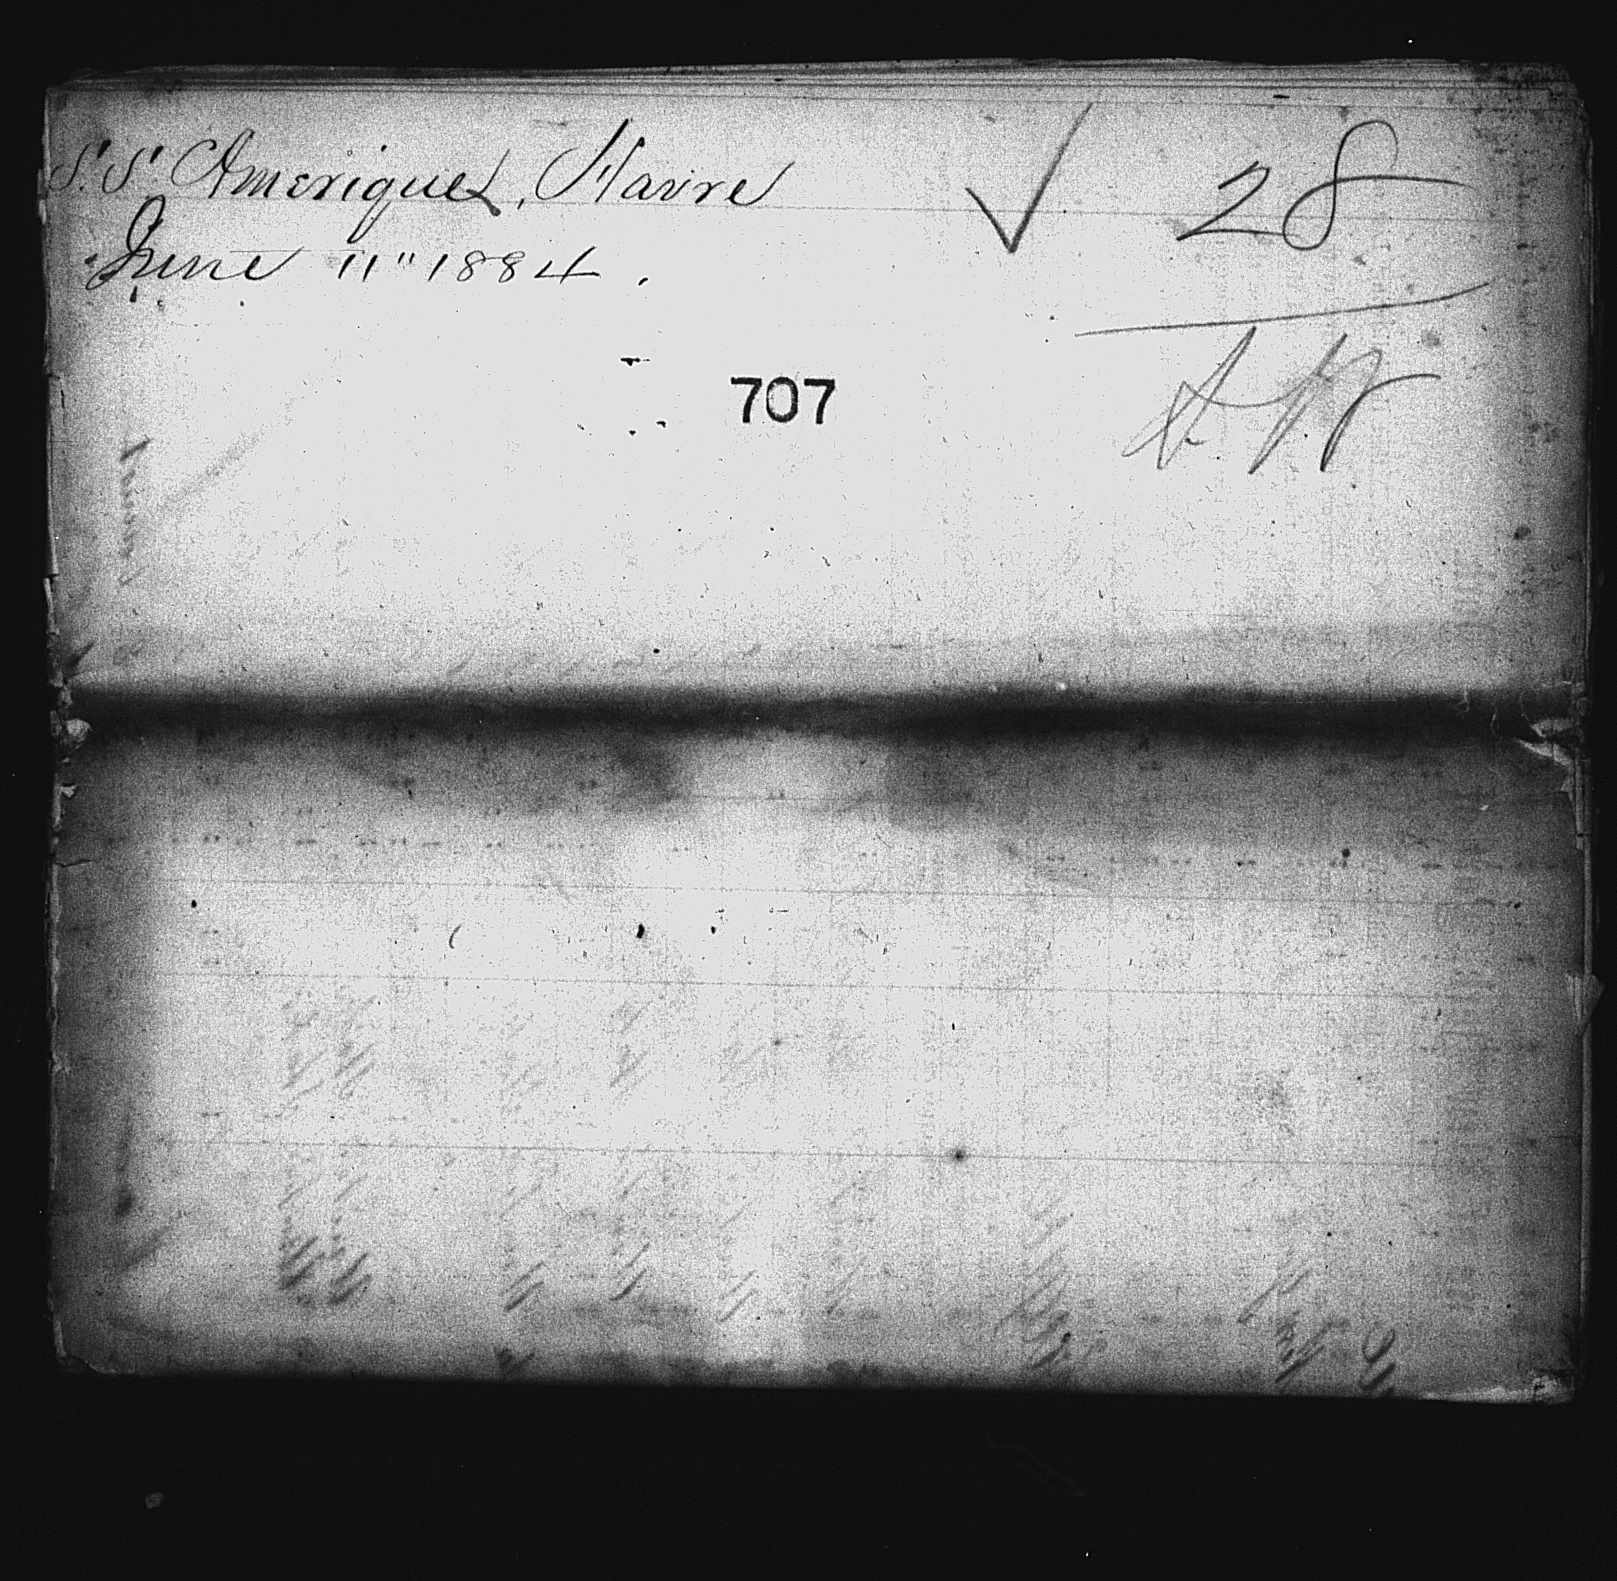 S.S. Amerique, Havre ✓ 28
June 11" 1884.
707